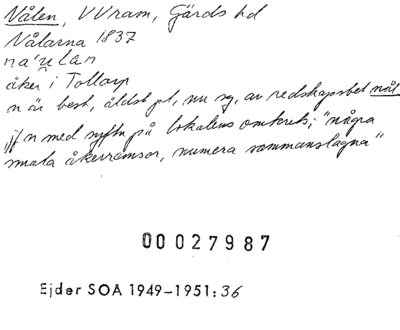 Nålen, VVram, Gärds hd
Nålarna 1837
åker i Tollarp
n är best, äldst pl, nu sg, av redskapsbet nål
"jfn med syftn på lokalens omkrets; "några
smala åkerremsor, numera sammanslagna"
00027987
Ejder SOA 1949-1951:36